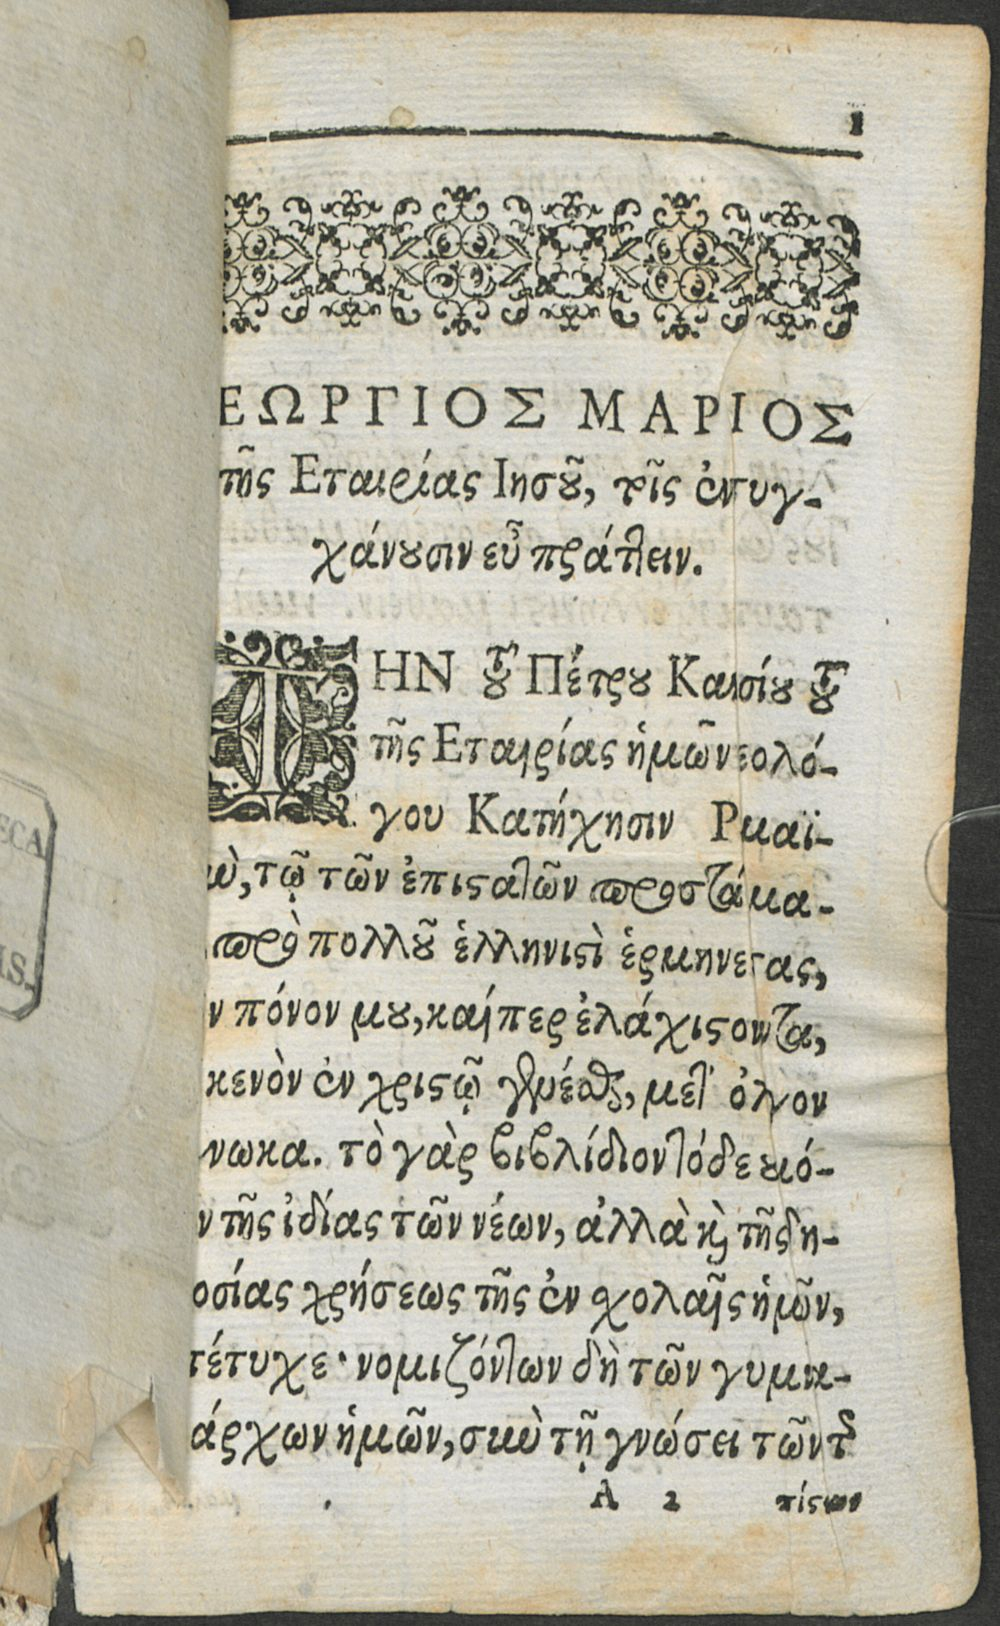 1
ΕΩΡΓΙΟΣ ΜΑΡΙΟΣ
τῆς Εταιρίας Ιησοῦ, τοῖς ἐντυγ-
χάνουσιν εὖ πράττειν.
ΤΗΝ τοῦ Πέτρου Κασίου τοῦ
τῆς Εταιρίας ἡμῶν εολό-
γου Κατήχησιν Ρ καϊ-
τῷ τῶν ἐπιστατῶν προστάγμα-
πρὸ πολλοῦ ἑλληνιστὶ ἑρμηνε ας,
ν πόνον μου, καίπερ ἐλάχιστον ὄντα,
κενὸν ἐν χριστῷ γενέσθαι, μετ' ὀλίγον
νωκα. τὸ γὰρ βιβλίδιον τόδε μό-
ν τῆς ἰδίας τῶν νέων, ἀλλὰ καὶ τῆς δη-
οσίας χρήσεως τῆς ἐν σχολαῖς ἡμῶν,
τέτυχε· νομιζόντων δὴ τῶν γυμνα-
άρχων ἡμῶν, σὺν τῇ γνώσει τῶν τῆς
A 2 πίστεων
ECA
IS.